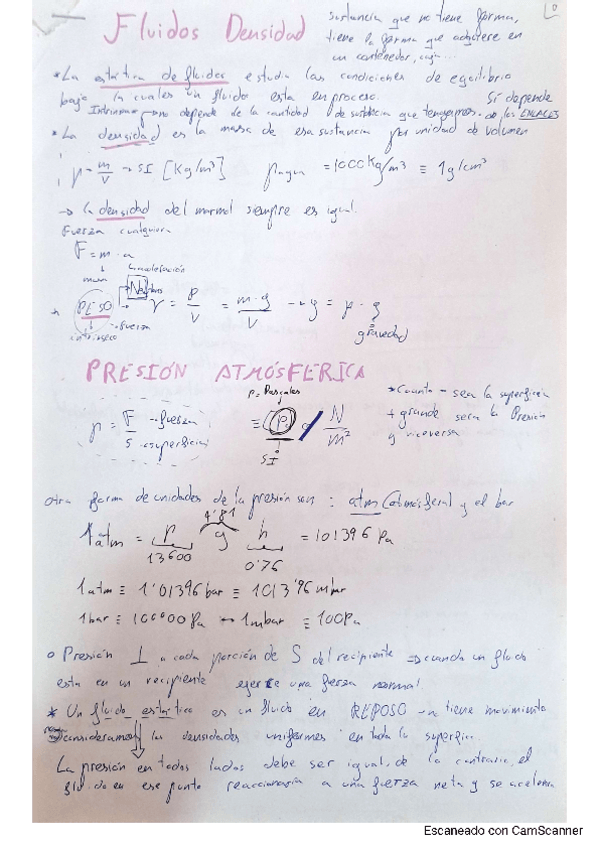 Fluidos Densidad
sustancia que no tiene forma,
tiene la forma que adquiere en
un contenedor, caja...
*La estática de fluidos estudia las condiciones de equilibrio
bajo la cuales un fluido esta en proceso.
Si depende
no depende de la cantidad de sustancia que tengamos. de los ENLACES
*La densidad es la masa de esa sustancia por unidad de volumen
ρ = m/V → SI [Kg/m³] ρagua = 1000Kg/m³ ≡ 1g/cm³
→ la densidad del mormol siempre es igual.
Fuerza cualquiera
F = m · a
masa
aceleración
PESO
Newtons
→ fuerza
γ = P/V = m·g/V → γ = ρ · g
gravedad
PRESIÓN ATMÓSFERICA
P = Pascales
p = F/S → fuerza → superficie
= Pa o N/m²
SI
*Cuanto - sea la superficie
+ grande sera la Presión
y viceversa
Otra forma de unidades de la presión son: atm (atmósfera) y el bar
1 atm = ρ g h = 101396 Pa
9'81
13600 0'76
1atm ≡ 1'01396 bar ≡ 1013'96 mbar
1bar ≡ 100000 Pa ↔ 1mbar ≡ 100Pa
o Presión ⊥ a cada porción de S del recipiente ⇒ cuando un fluido
esta en un recipiente ejerce una fuerza normal.
* Un fluido estático es un fluido en REPOSO → no tiene movimiento
consideramos las densidades uniformes en toda la superficie.
La presión en todos lados debe ser igual, de lo contrario, el
fluido en ese punto reaccionaria a una fuerza neta y se acelera
Escaneado con CamScanner